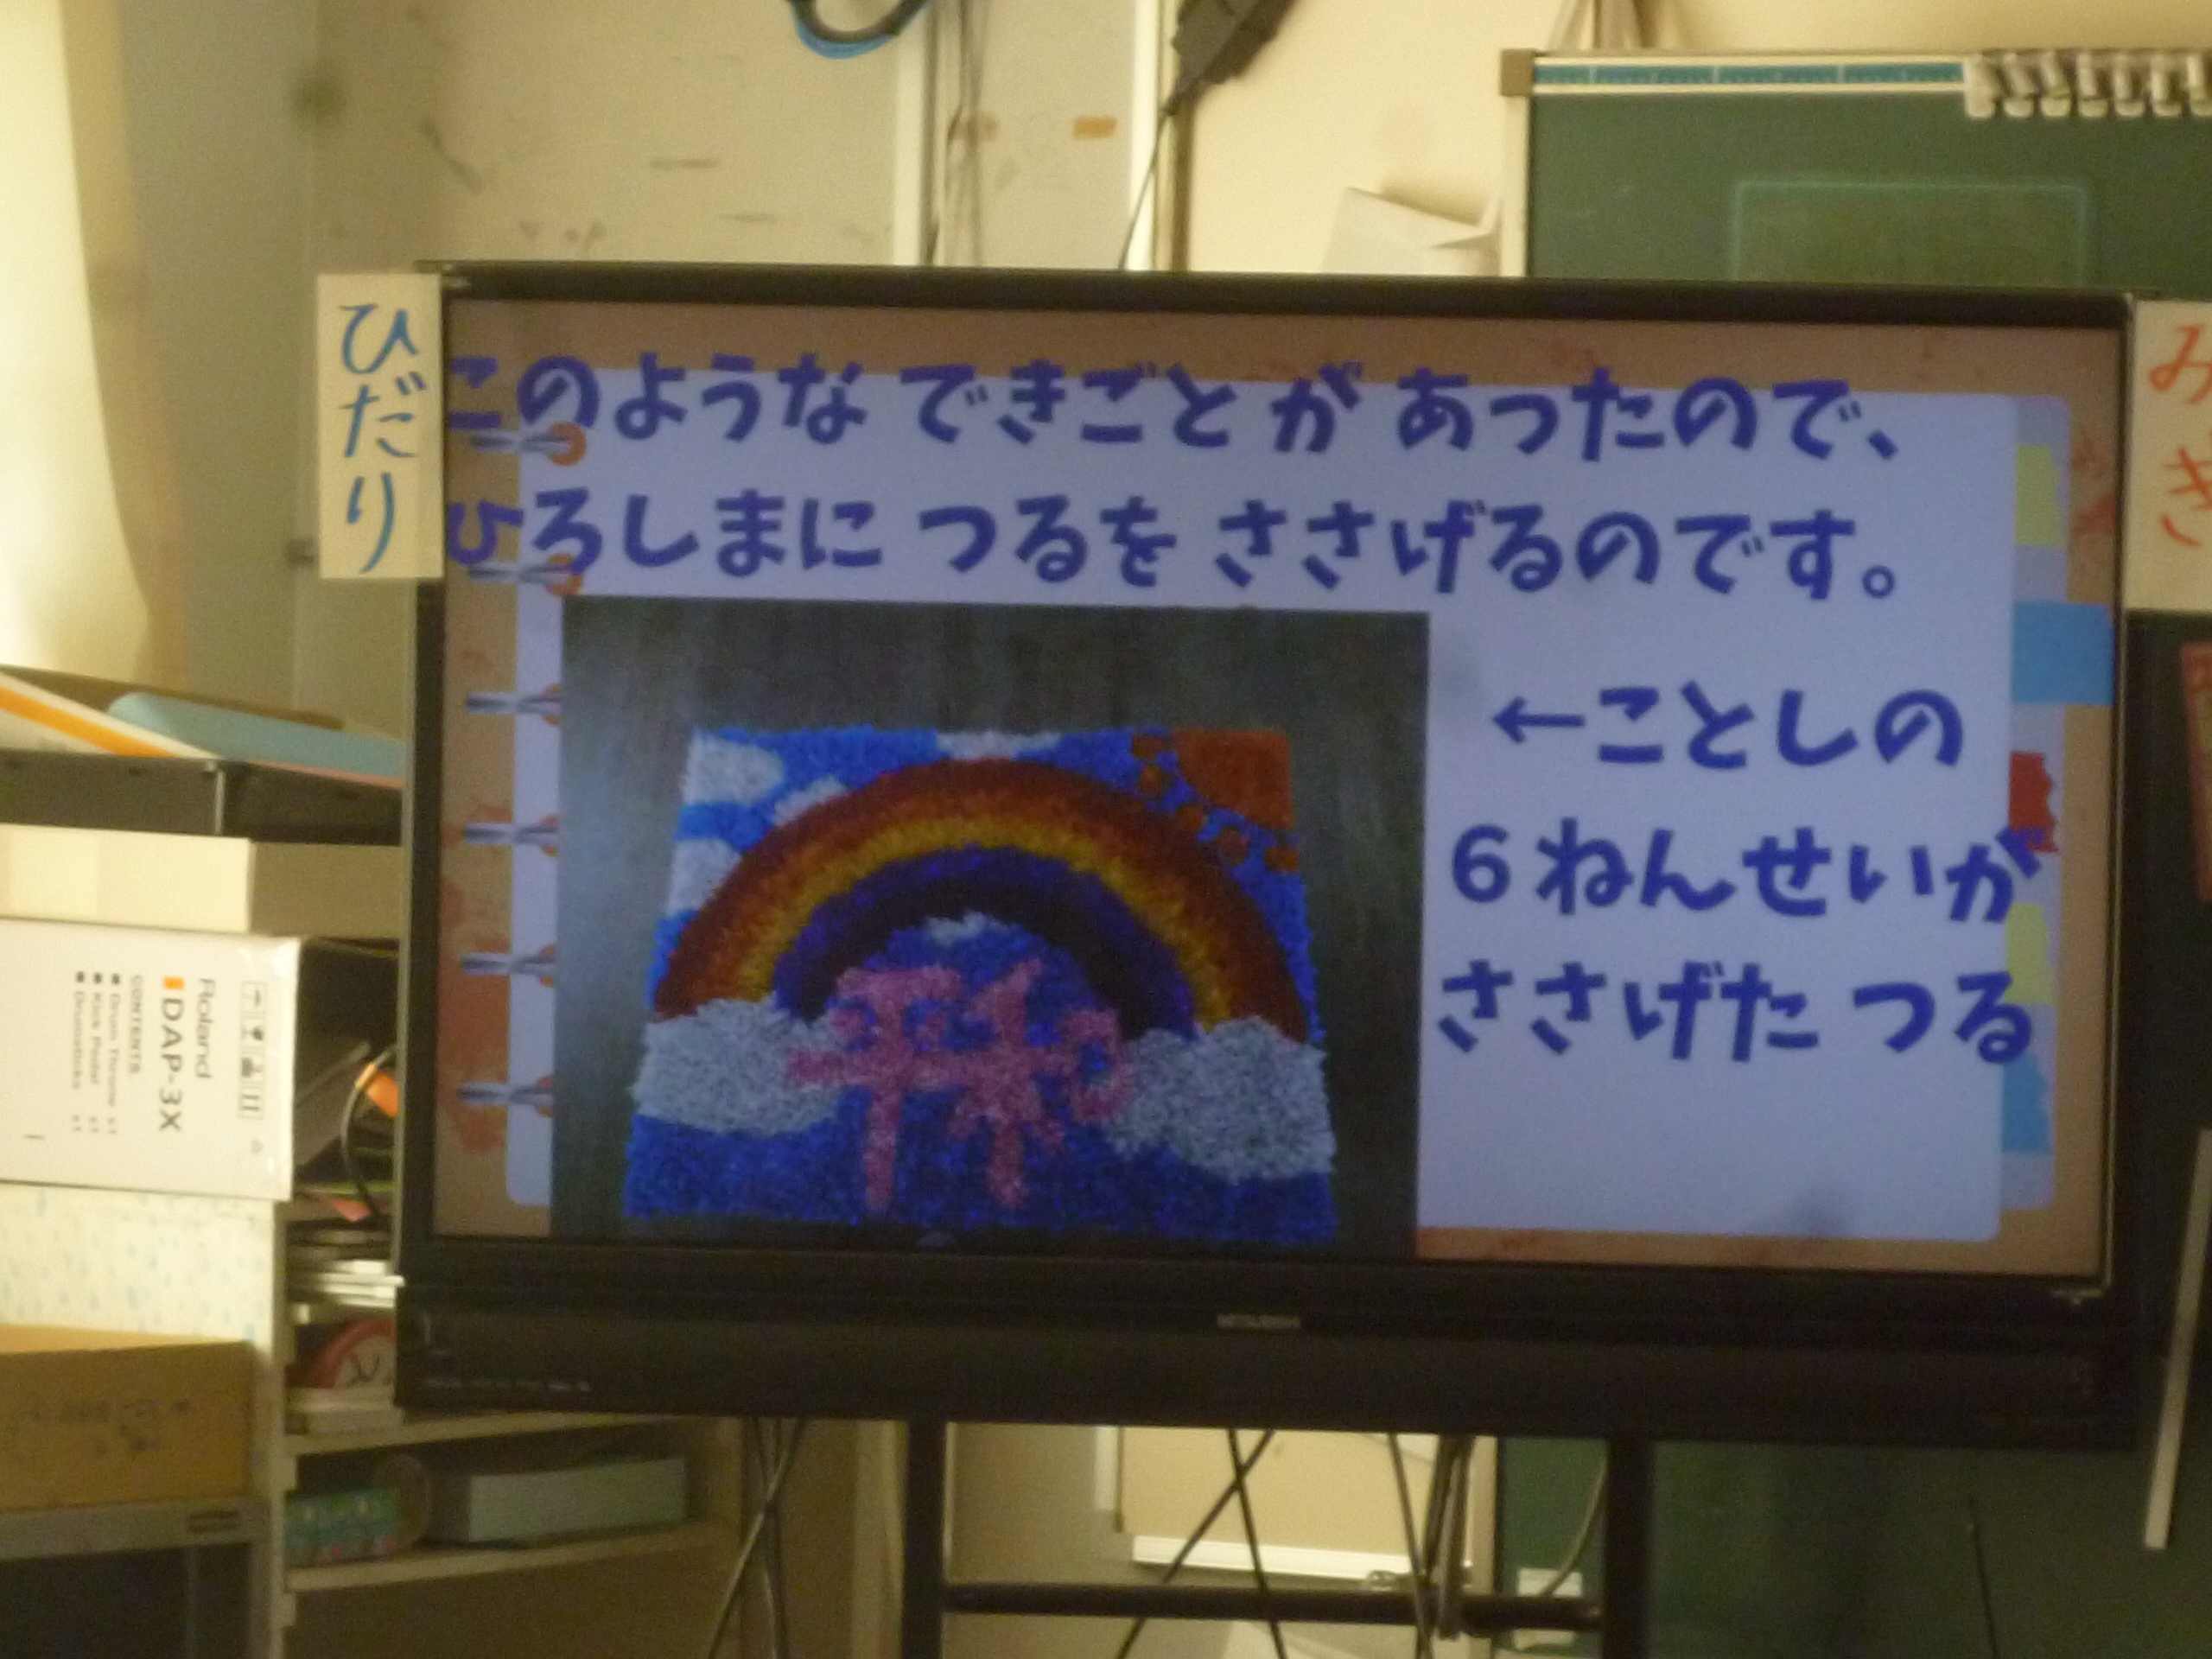 ひだり
このような できごと が あったので、
ひろしまに つるを ささげるのです。
←ことしの
6ねんせいが
ささげた つる
平和
みぎ
Roland
DAP-3X
CONTENTS
Drum Throne x1
Kick Pedal x1
Drumsticks x1
MITSUBISHI